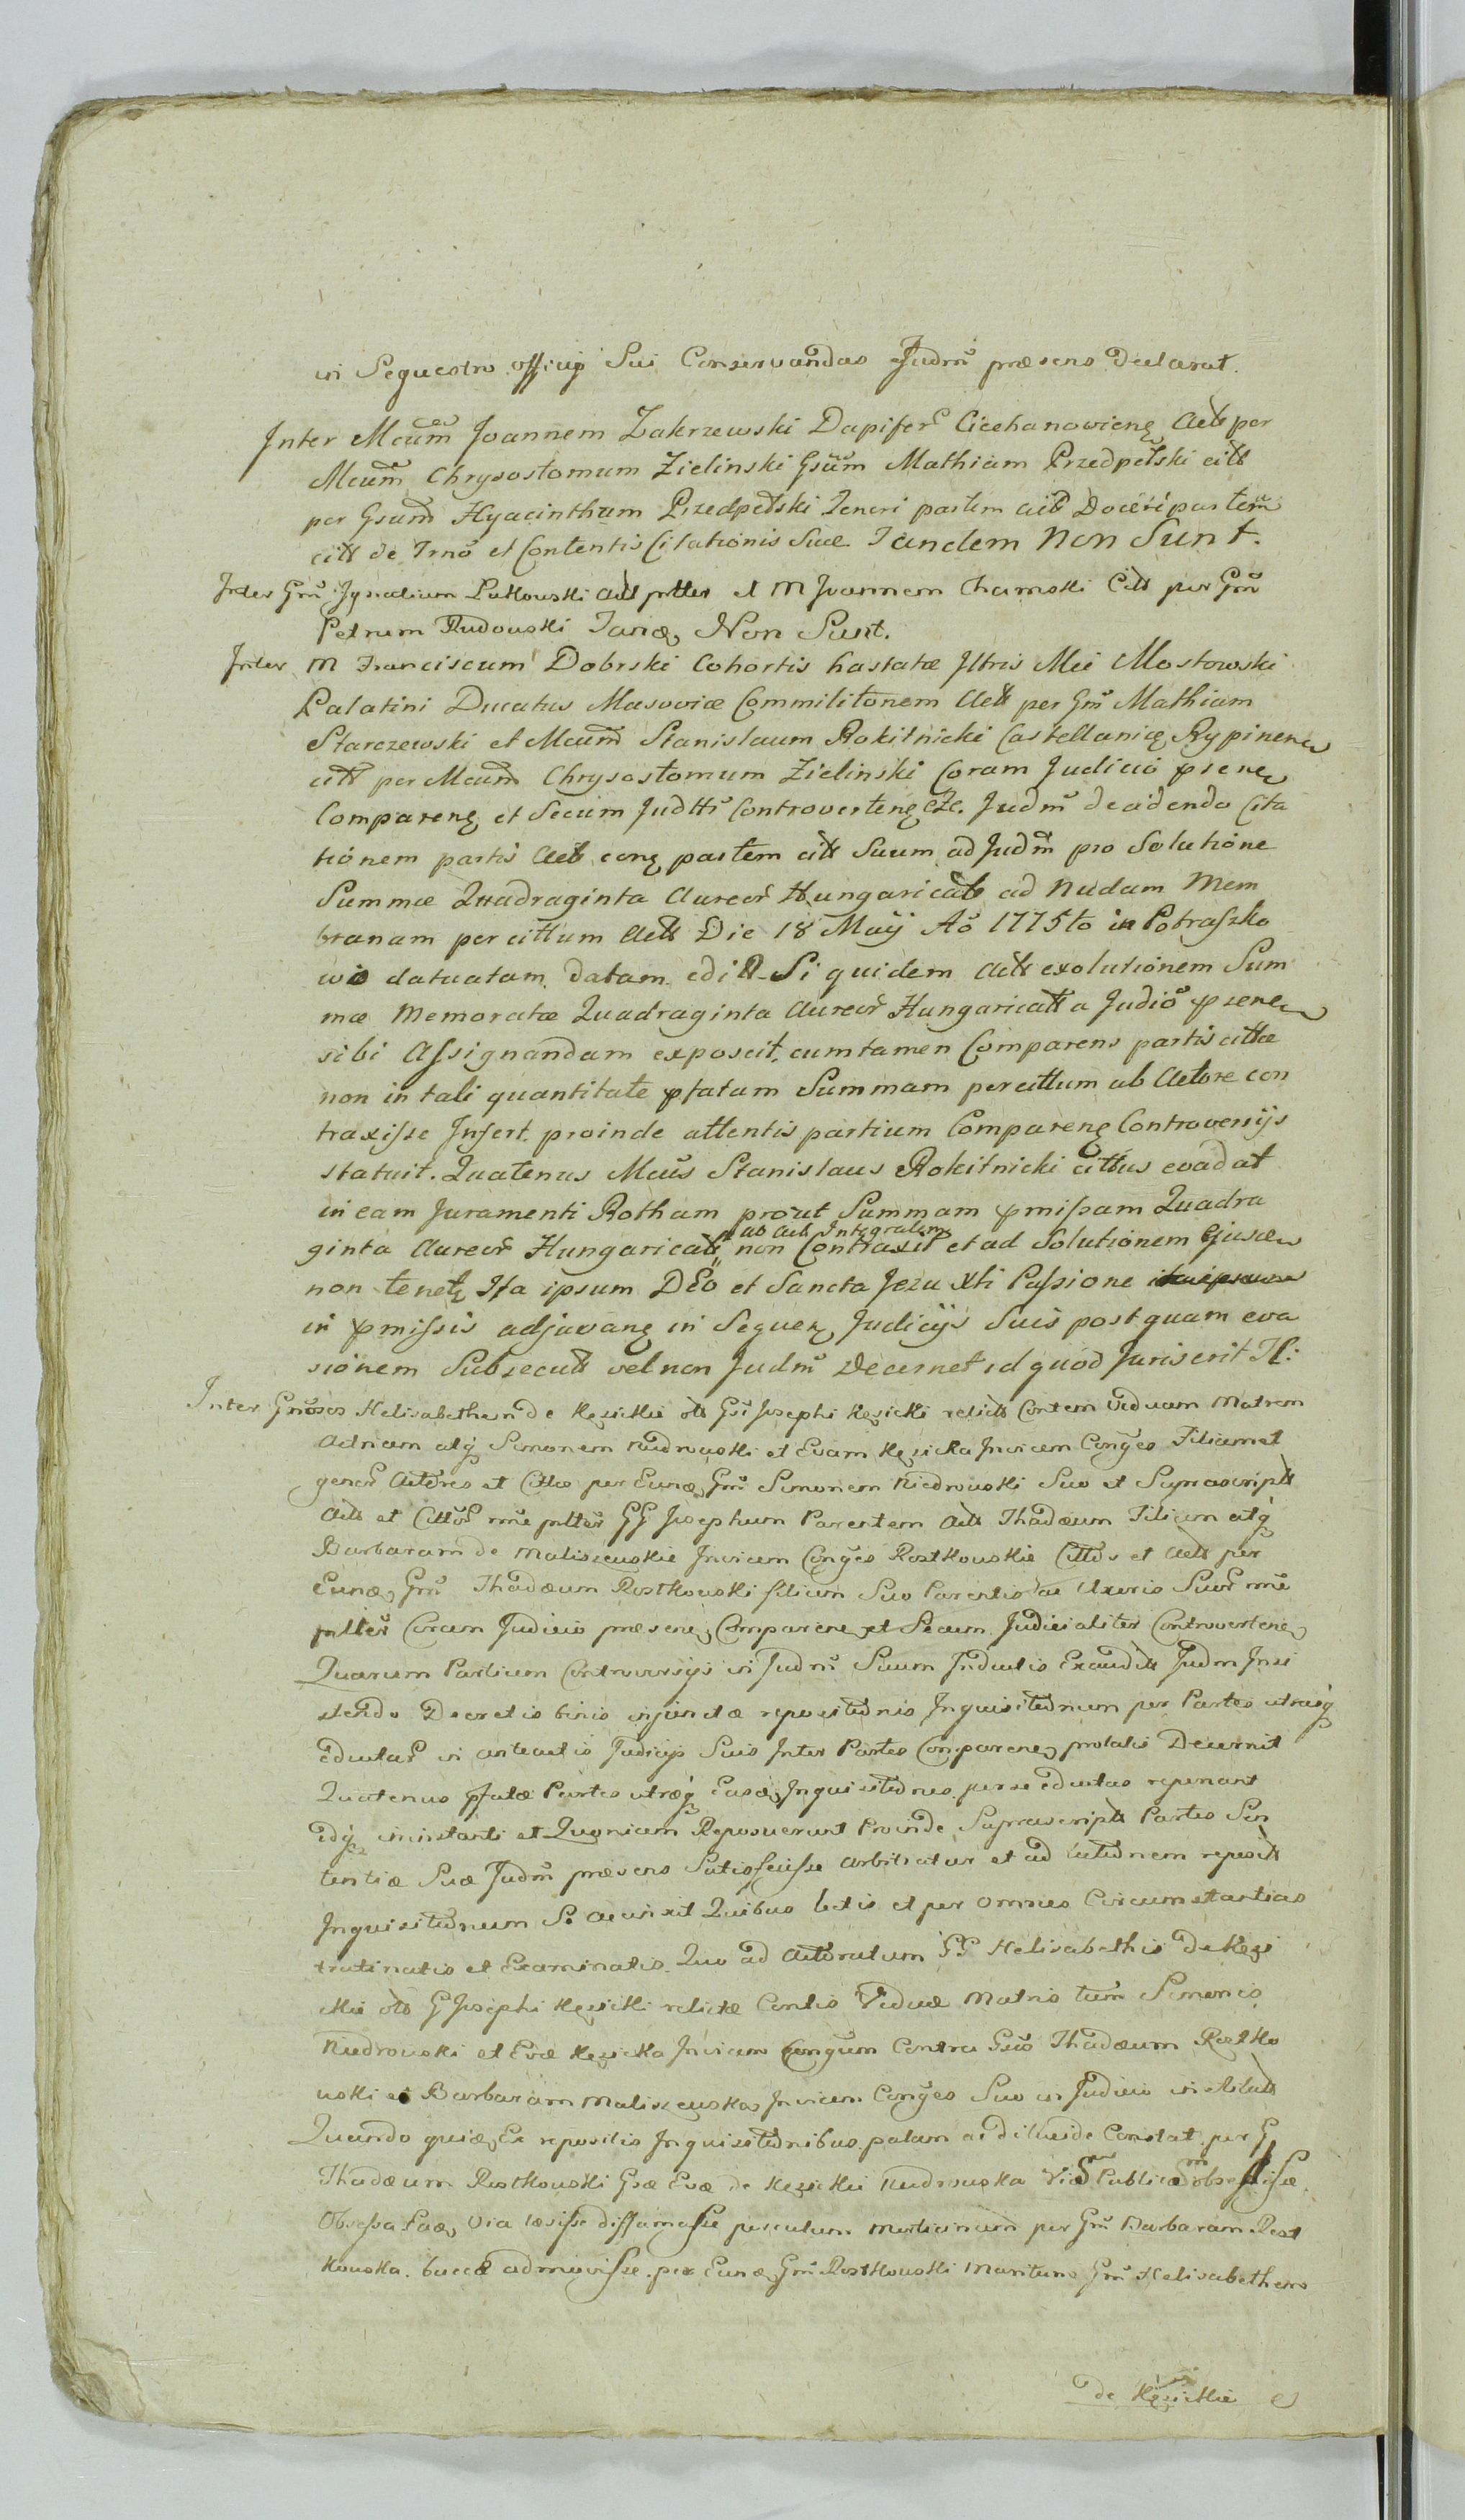 in Sequestro officij Sui Conservandas Judm̃ præsens declarat.
Inter Mcum Joannem Zakrzewski Dapifer Ciechanovieng Actt per
Mcum Chrysostomum Zielinski Gsum Mathiam Przedpełski citt
per Gsum Hyacinthum Przedpełski Teneri partem citt Doceri partem
citt de Trno et Contentis Citationis Suæ Tandem Non Sunt.
Inter Grm Ignatium Putkowski Actt pttes et M Joannem Chamski Citt per Grm
Petrum Rudowski Non Sunt.
Inter M Franciscum Dobrski Cohortis hastatæ Illtris Mci Mostowski
Palatini Ducatus Masoviæ Commilitonem Actt per Grm Mathiam
Starczewski et Mcum Stanislaum Rokitnicki Castellanic Rypinens
citt per Mcum Chrysostomum Zielinski Coram Judicio psens
Compareng et Secum Judtr Controverteng etc. Judm̃ decidendo Cita
tionem partis Act cong partem citt Suum ad Judm̃ pro Solutione
Summæ Quadraginta Aureor Hungaricatt ad Nudam Mem
branam per cittum Actt Die 18 Maij Ao 1775to in Potraszko
wio datuatam datam editt Si quidem Actt exolutionem Sum
mæ Memoratæ Quadraginta Aureor Hungaricatt a Judio psene
sibi Assignandam exposcit, cum tamen Comparens partis cittæ
non in tali quantitate pfatam Summam per cittum ab Actore con
traxisse Infert. proinde attentis partium Compareng Controversijs
statuit. Quatenus Mcus Stanislaus Rokitnicki cittus evadat
in eam Juramenti Rotham prout Summam pmissam Quadra
ginta Aureor Hungaricatt ab Act Integralem non Contraxit et ad Solutionem Ejusd
non tenet Ita ipsum DEo et Sancta Jezu Xti Passione
in pmissis adjuvang in Sequen Judicijs Suis post quam eva
sionem Subsecutt vel non Judm̃ Decernet id quod Juris erit Il:
Inter Gnosos Helisabetham de Kęsickie Gsi Josephi Kęsicki relictt Contem Viduam Matrem
Actricem atq Simonem Niedrowski et Evam Kęsicka Invicem Conges Filiam et
gener Actores et Cittos per Eund Grm Simonem Niedrowski Suo et Suprascriptt
Actt et Cittor nne pttes GG Josephum Parentem Actt Thadæum Filium atq
Barbaram de Maliszewskie Invicem Conges Rostkowskie Cittos et Actt per
Eund Grm Thadæum Rostkowski filium Suo Parentis ac Uxoris Suor nne
pttes Coram Judicio præsene Comparene et Secum Judicialiter Controvertene
Quarum Partium Controversijs in Judm̃ Suum Inductis Exauditt Judm Insi
stendo Decretis binis injunctæ repositionis Inquisitionum per Partes utrasq
eductar in anteactis Judicijs Suis Inter Partes Comparene prolatis Decernit
Quatenus pfatæ Partes utræq Easd Inquisitiones per se eductas reponant
idq in instanti et Quoniam Reposuerunt Proinde Suprascriptt Partes Sen
tentiæ Suæ Judm̃ præsens Satisfecisse arbitratur et ad lectionem repositt
Inquisitionum Se accinxit Quibus lectis et per omnes Circumstantias
trutinatis et Examinatis. Quo ad Actoratum GG Helisabethis de Kęsi
ckie G Josephi Kęsicki relictæ Contis Viduæ Matris tum Simonis
Niedrowski et Evæ Kęsicka Invicem Congum Contra Gsos Thadæum Rostko
wski et Barbaram Maliszewskas Invicem Conges Suo in Judicio institutt
Quando quid Ex repositis Inquisitionibus palam ac dilucide Constat per G
Thadæum Rostkowski Gsæ Evæ de Kęsickie Niedrowska Viam Publicam obsedisse
Obsessa Ead Via læsisse diffamasse per Grm Barbaram Rost
kowska. buccæ admovisse. per Eund Grm Rostkowski Maritum Grm Helisabetham
de Kęsickie